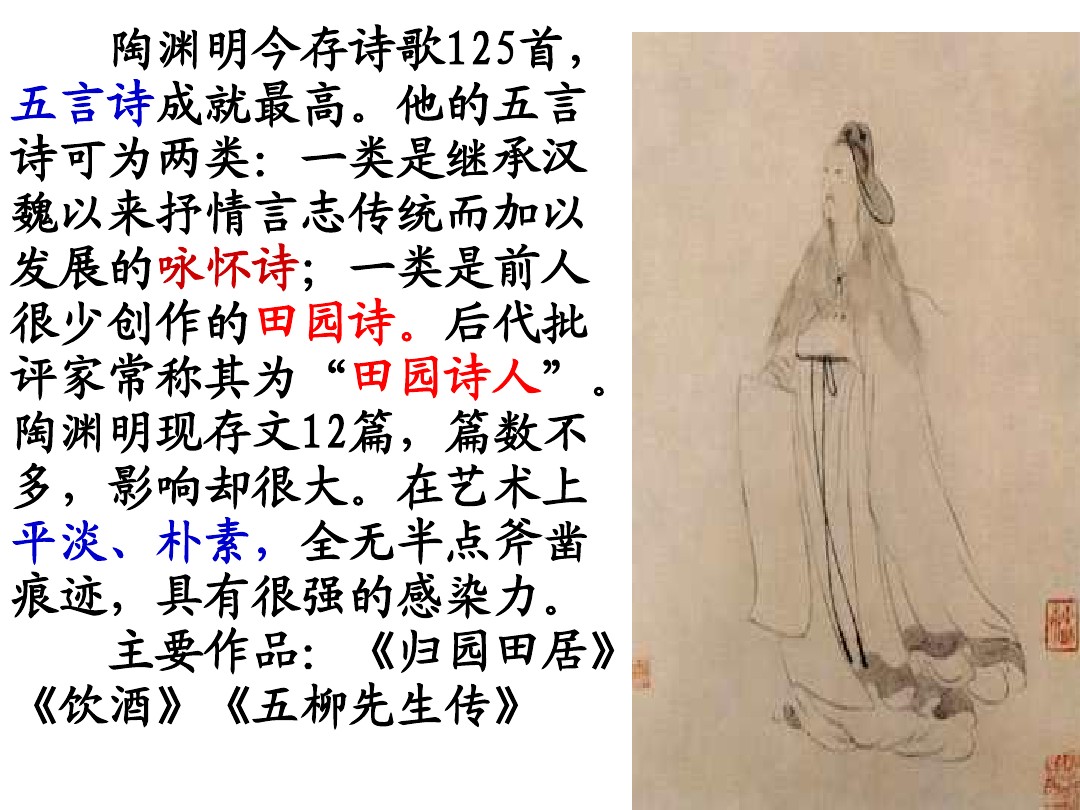 陶渊明今存诗歌125首，
五言诗成就最高。他的五言
诗可为两类：一类是继承汉
魏以来抒情言志传统而加以
发展的咏怀诗；一类是前人
很少创作的田园诗。后代批
评家常称其为“田园诗人”。
陶渊明现存文12篇，篇数不
多，影响却很大。在艺术上
平淡、朴素，全无半点斧凿
痕迹，具有很强的感染力。
主要作品：《归园田居》
《饮酒》《五柳先生传》